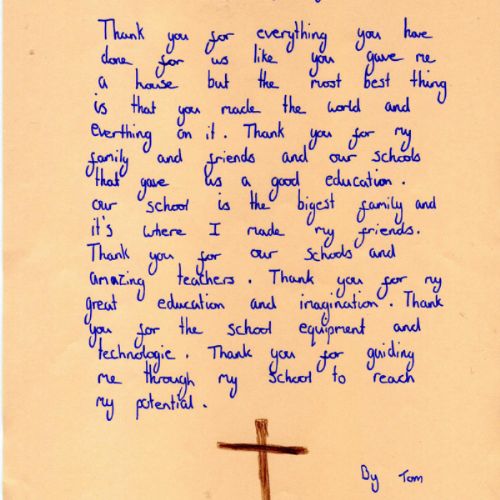 Thank you for everything you have
done for us like you gave me
a house but the most best thing
is that you made the world and
everthing on it. Thank you for my
family and friends and our schools
that gave us a good education.
our school is the bigest family and
it's where I made my friends.
Thank you for our schools and
amazing teachers. Thank you for my
great education and imagination. Thank
you for the school equipment and
technologie. Thank you for guiding
me through my school to reach
my potential.
By Tom